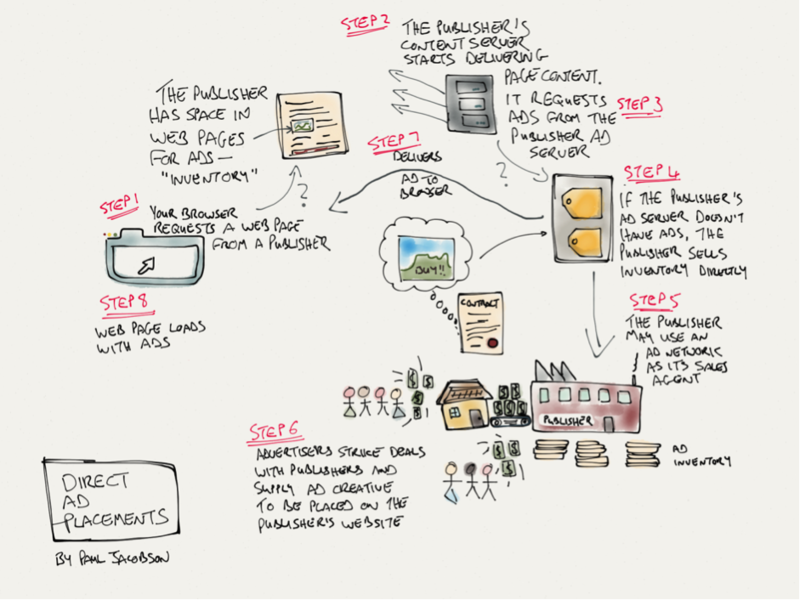 STEP 2
THE PUBLISHER'S
CONTENT SERVER
STARTS DELIVERING
PAGE CONTENT.
IT REQUESTS
ADS FROM THE
PUBLISHER AD
SERVER
STEP 3
THE PUBLISHER
HAS SPACE IN
WEB PAGES
FOR ADS —
"INVENTORY"
STEP 7
DELIVERS
AD TO
BROWSER
?
?
STEP 4
IF THE PUBLISHER'S
AD SERVER DOESN'T
HAVE ADS, THE
PUBLISHER SELLS
INVENTORY DIRECTLY
STEP 1
YOUR BROWSER
REQUESTS A WEB PAGE
FROM A PUBLISHER
BUY!!
CONTRACT
STEP 8
WEB PAGE LOADS
WITH ADS
STEP 5
THE PUBLISHER
MAY USE AN
AD NETWORK
AS ITS SALES
AGENT
$
$
$
$
PUBLISHER
STEP 6
ADVERTISERS STRIKE DEALS
WITH PUBLISHERS AND
SUPPLY AD CREATIVE
TO BE PLACED ON THE
PUBLISHER'S WEBSITE
AD
INVENTORY
DIRECT
AD
PLACEMENTS
BY PAUL JACOBSON